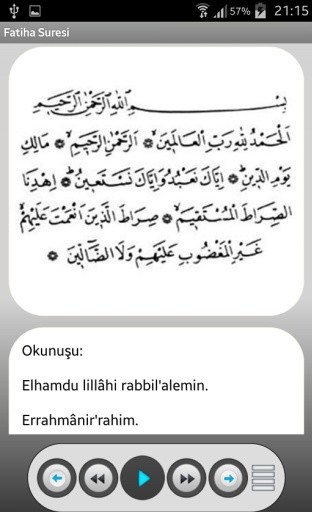 57% 21:15
Fatiha Suresi
بِسْمِ اللهِ الرَّحْمٰنِ الرَّحِيمِ
اَلْحَمْدُ لِلّٰهِ رَبِّ الْعَالَمِينَۙ ۞ اَلرَّحْمٰنِ الرَّحِيمِۙ ۞ مَالِكِ
يَوْمِ الدِّينِۜ ۞ اِيَّاكَ نَعْبُدُ وَاِيَّاكَ نَسْتَعِينُۜ ۞ اِهْدِنَا
الصِّرَاطَ الْمُسْتَقِيمَۙ ۞ صِرَاطَ الَّذِينَ اَنْعَمْتَ عَلَيْهِمْۙ
غَيْرِ الْمَغْضُوبِ عَلَيْهِمْ وَلَا الضَّالِّينَ ۞
Okunuşu:
Elhamdu lillâhi rabbil'alemin.
Errahmânir'rahim.